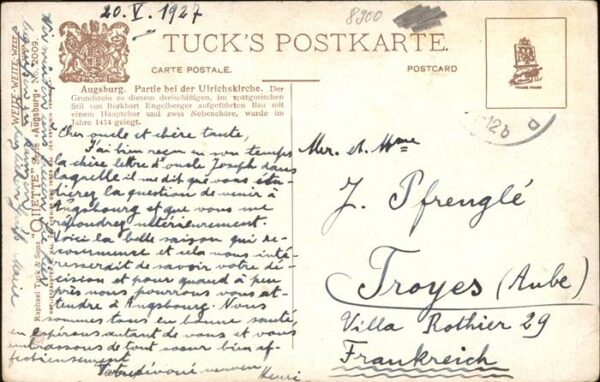 20. V. 1927
8900
TUCK'S POSTKARTE.
CARTE POSTALE.
POSTCARD
TRADE MARK
Augsburg. Partie bei der Ulrichskirche. Der
Grundstein zu diesem dreischiffigen, im spätgotischen
Stil von Burkhart Engelberger aufgeführten Bau mit
einem Hauptchor und zwei Nebenchöre, wurde im
Jahre 1474 gelegt.
Cher oncle et chère tante,
J'ai bien reçu en son temps
la chère lettre d'oncle Joseph dans
laquelle il me dit que vous étu-
dierez la question de venir à
Augsbourg et que vous me
répondrez ultérieurement.
Voici la belle saison qui re-
commence et cela nous inté-
resserait de savoir votre dé-
cision et pour quand à peu
près nous pourrons vous at-
tendre à Augsbourg. Nous
sommes tous en bonne santé
en espérons autant de vous et vous
embrassons de tout cœur bien af-
fectueusement
Votre dévoué neveu
Henri
Mr. et Mme
J. Pfrenglé
Troyes (Aube)
Villa Rothier 29
Frankreich
12b
Raphael Tuck & Sons' "OILETTE" Serie "Augsburg" No. 2009.